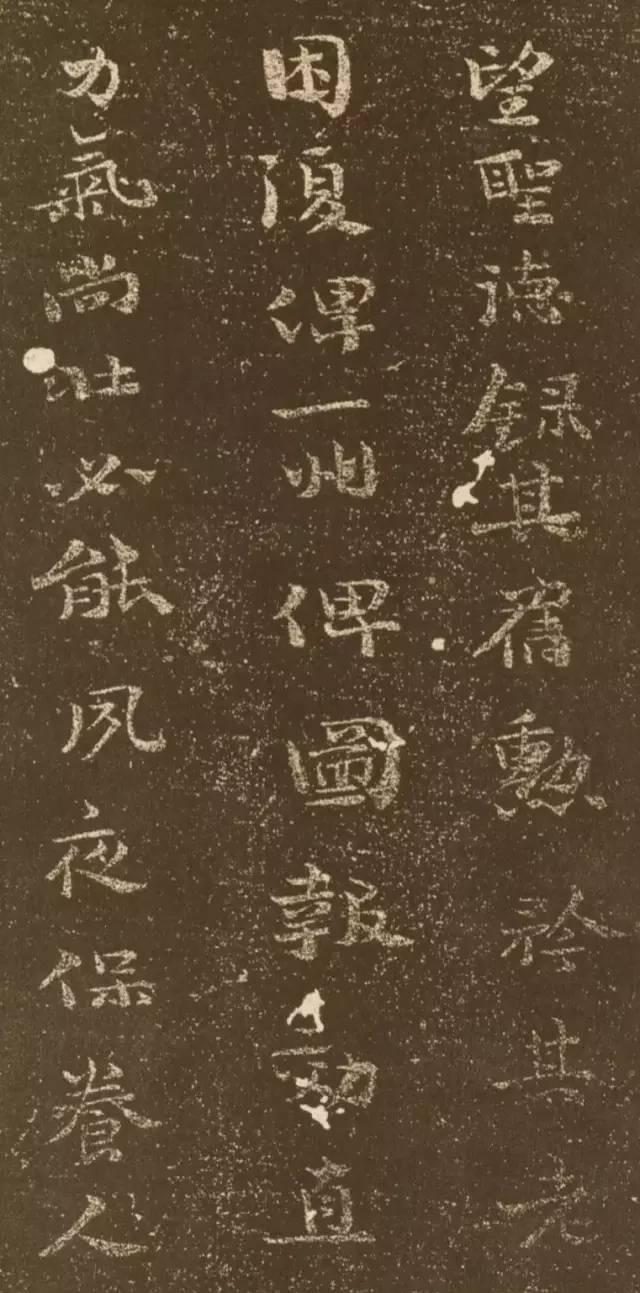 望聖德録其舊勲矜其老
困復俾一州俾圖報効直
力氣尚壯必能夙夜保養人